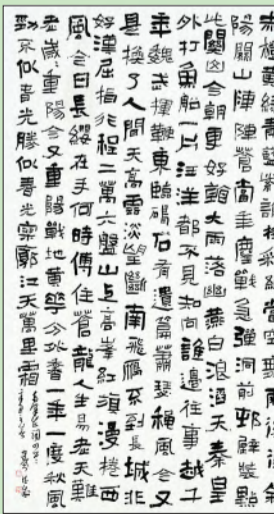 赤橙黃綠青藍紫誰持彩練當空舞雨後復斜
陽關山陣陣蒼當年鏖戰急彈洞前邨壁裝點
此關山今朝更好看大雨落幽燕白浪滔天秦皇島
外打魚船一片汪洋都不見知向誰邊往事越千
年魏武揮鞭東臨碣石有遺篇蕭瑟秋風今又
是換了人間天高雲淡望斷南飛雁不到長城非
好漢屈指行程二萬六盤山上高峰紅旗漫捲西
風今日長纓在手何時縛住蒼龍人生易老天難
老歲歲重陽今又重陽戰地黃花分外香一年一度秋風
勁不似春光勝似春光寥廓江天萬里霜